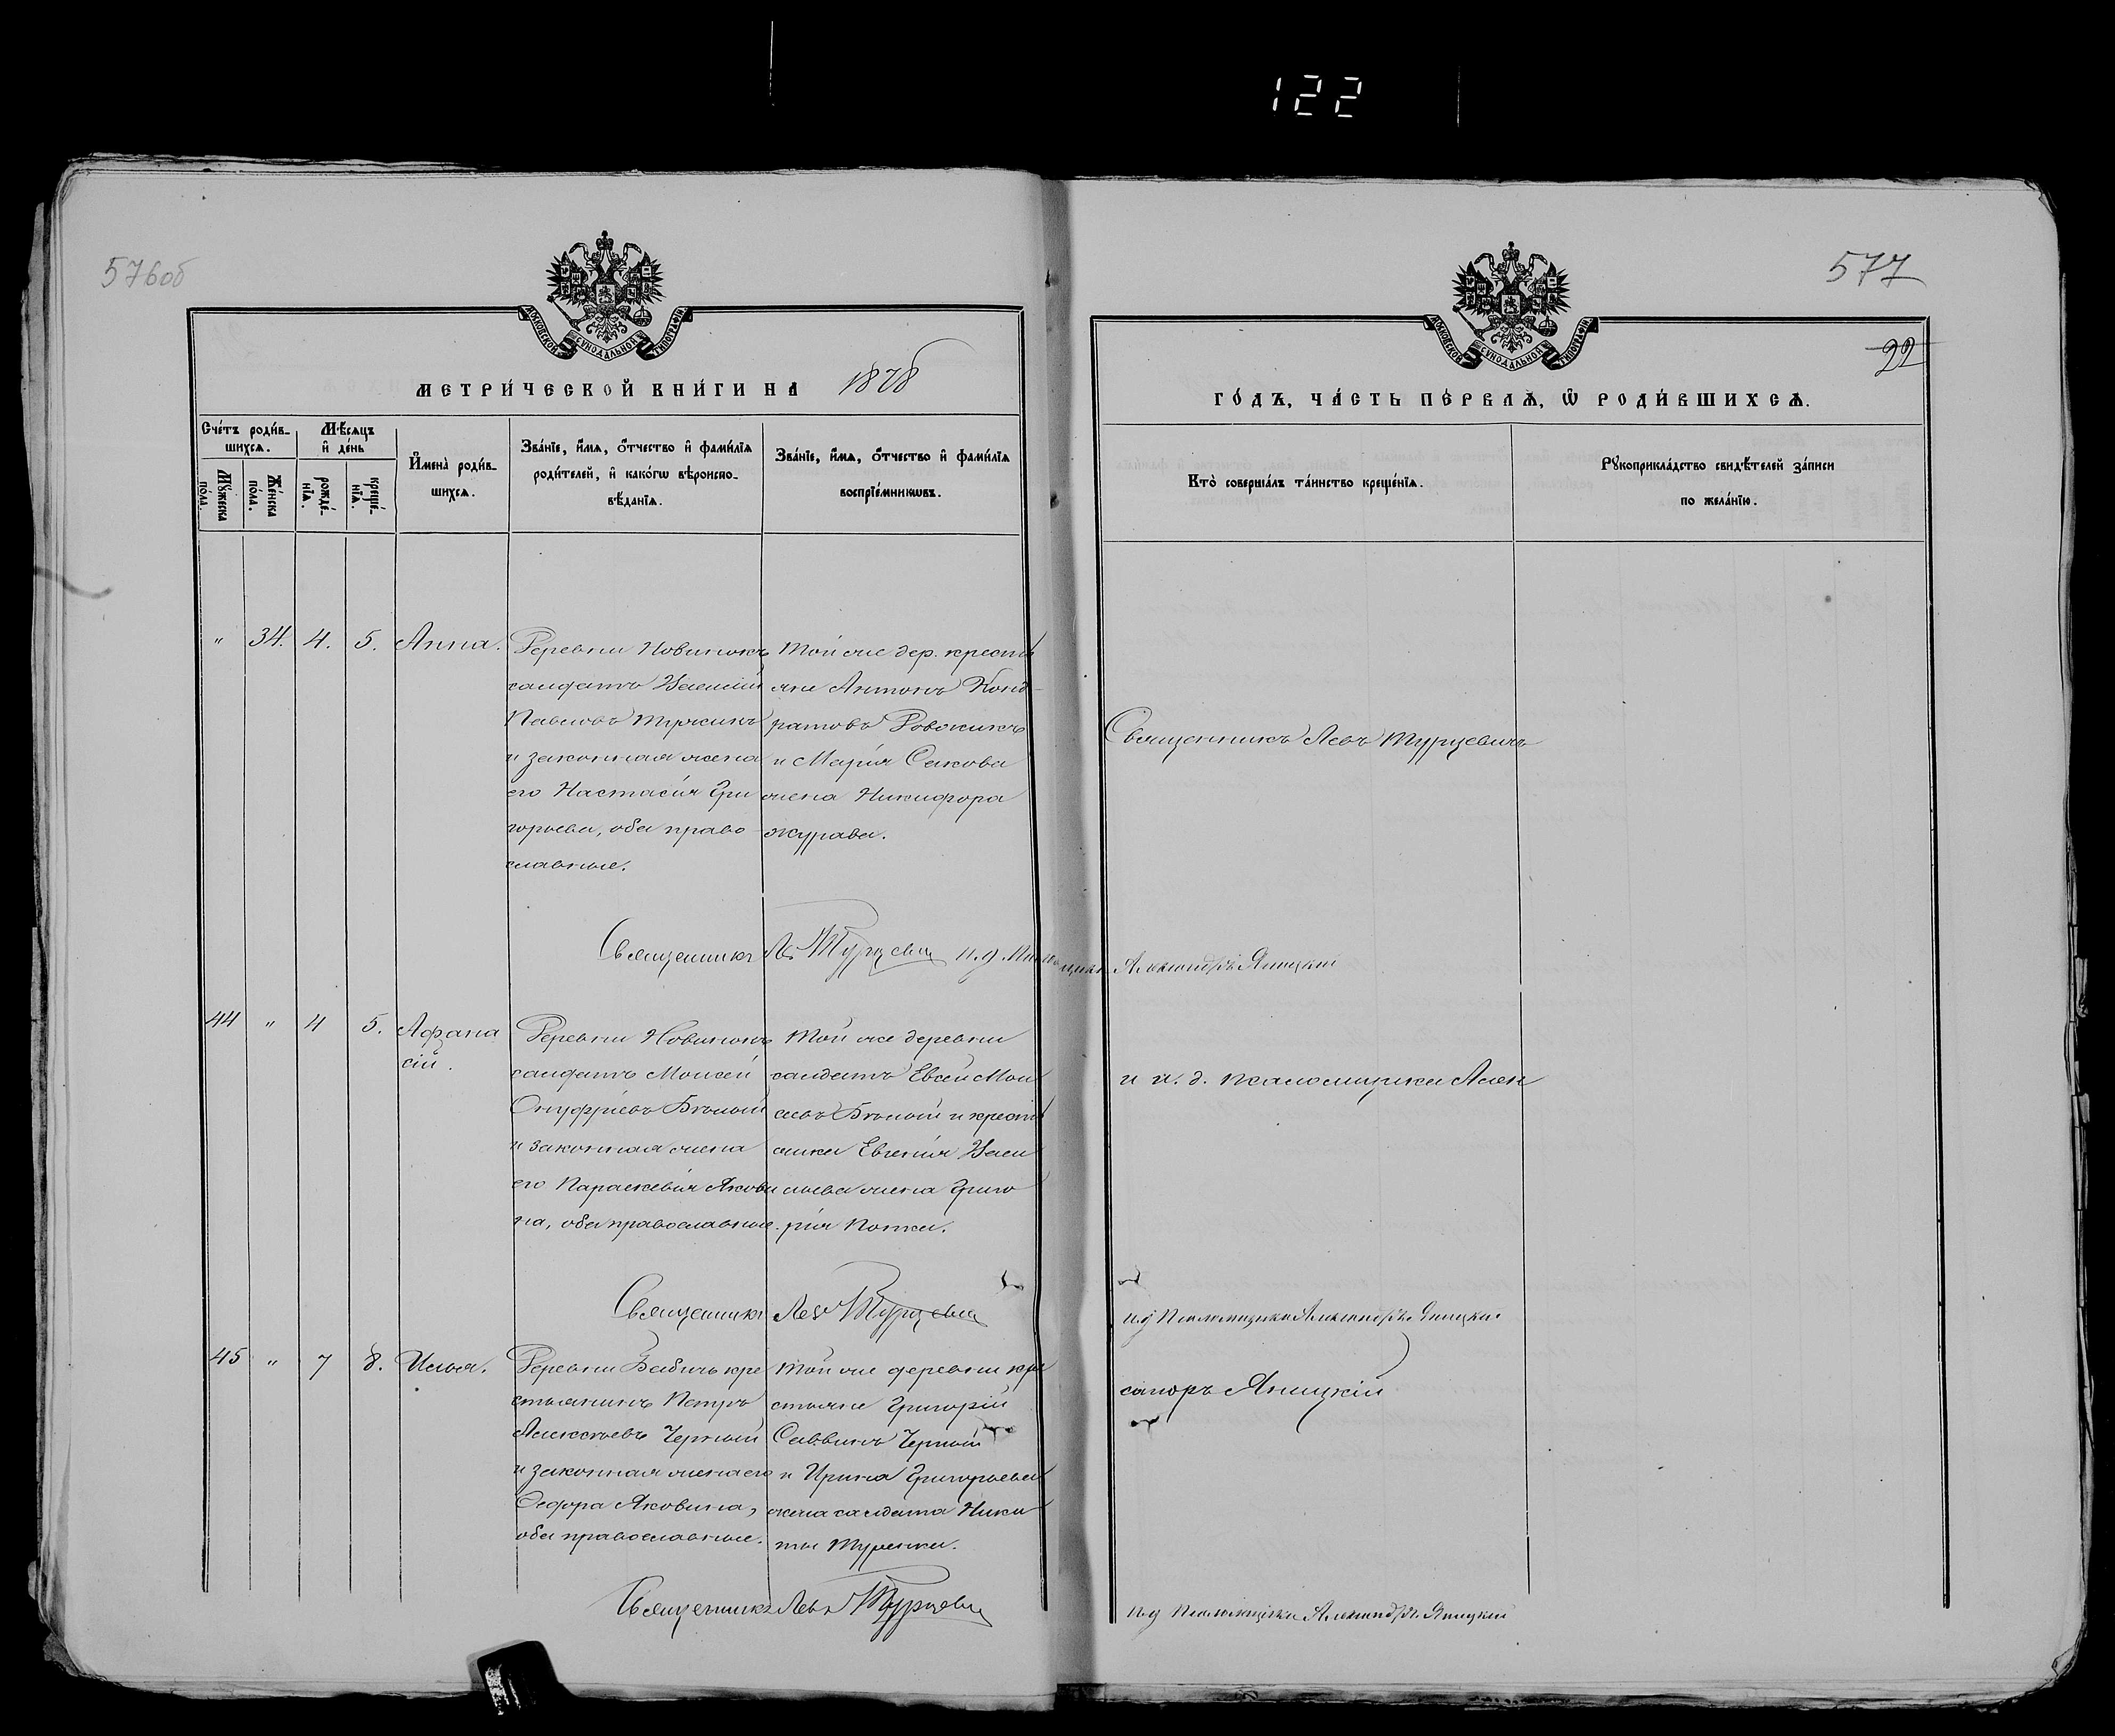 122
576об
577
22
МОСКОВСКОЙ СУНОДАЛЬНОЙ ТИПОГРАФІИ
МОСКОВСКОЙ СУНОДАЛЬНОЙ ТИПОГРАФІИ
МЕТРИ́ЧЕСКОЙ КНИ́ГИ НА 1878
ГО́ДЪ, ЧА́СТЬ ПЕ́РВАѦ, Ѽ РОДИ́ВШИХСѦ.
Сче́тъ роди́в-
шихсѧ.
Мꙋ́жеска по́ла.
Же́нска по́ла.
Мѣ́сѧцъ
и҆ де́нь
рожде́-
нїѧ.
креще́-
нїѧ.
И҆мена̀ роди́в-
шихсѧ.
Зва́нїе, и҆́мѧ, о҆́тчество и҆ фами́лїѧ
роди́телей, и҆ како́гѡ вѣроиспо-
вѣ́данїѧ.
Зва́нїе, и҆́мѧ, о҆́тчество и҆ фами́лїѧ
воспрїе́мникѡвъ.
Кто̀ соверша́лъ та́инство креще́нїѧ.
Рꙋкоприкла́дство свидѣ́телей за́писи
по жела́нїю.
" 34. 4. 5. Анна.
Деревни Новинокъ
салдатъ Василій
Павловъ
и законная жена
его Настасія Гри
горьева, оба право
славные.
Той же дер. кресть
яне Антонъ Конд-
ратовъ
и Марія Сакова
жена Никифора
Журава.
Священникъ Левъ Турцевичъ
Священникъ Левъ Турцевичъ и.д. Псаломщика Александръ Яницкій
44 " 4 5. Афана
сій.
Деревни Новинокъ
салдатъ Моисей
Онуфріевъ Бѣлый
и законная жена
его Параскевія Якови
на, оба православные.
Той же деревни
салдатъ Евсей Мои
сеевъ Бѣлый и кресть
янка Евгенія Васи
льева жена Григо
рія Потки.
и и. д. псаломщика Алек
Священникъ Левъ Турцевичъ
и.д Псаломщика Александръ Яницкій
45 " 7 8. Илья.
Деревни Бабичъ кре
стьянинъ Петръ
Алексѣевъ Черный
и законная жена его
Ѳеодора Яковина,
оба православные.
Той же деревни кре
стьяне Григорій
Саввинъ Черный
и Ирина Григорьева
жена салдата Ники
ты
сандръ Яницкій
Священникъ Левъ Турцевичъ
и.д Псаломщика Александръ Яницкій